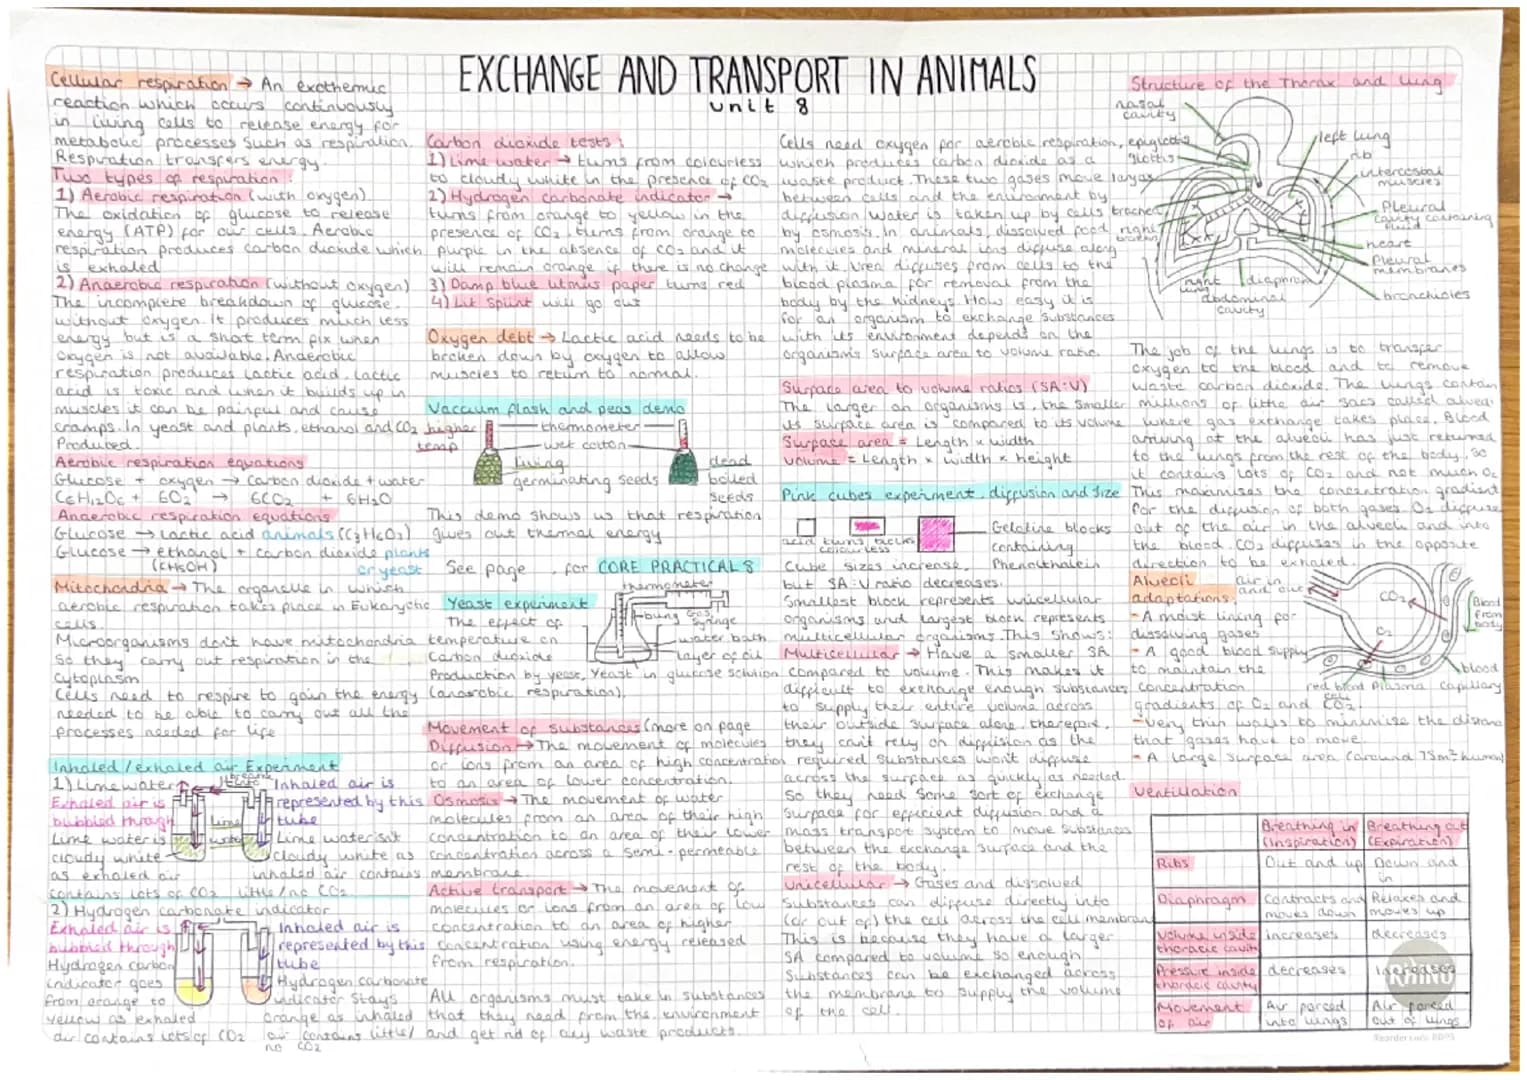 EXCHANGE AND TRANSPORT IN ANIMALS
unit 8
Cellular respiration → An exothermic
reaction which occurs continuously
in living cells to release energy for
metabolic processes such as respiration.
Respiration transfers energy.
Two types of respiration:
1) Aerobic respiration (with oxygen)
The oxidation of glucose to release
energy (ATP) for our cells. Aerobic
respiration produces carbon dioxide which
is exhaled
2) Anaerobic respiration (without oxygen)
The incomplete breakdown of glucose
without oxygen. It produces much less
energy but is a short term fix when
oxygen is not available. Anaerobic
respiration produces lactic acid. Lactic
acid is toxic and when it builds up in
muscles it can be painful and cause
cramps. In yeast and plants, ethanol and CO2
Produced.
Aerobic respiration equations
Glucose + oxygen → carbon dioxide + water
C6H12O6 + 6O2 → 6CO2 + 6H2O
Anaerobic respiration equations
Glucose → lactic acid animals (C3H6O3)
Glucose → ethanol + carbon dioxide plants
or yeast
Mitochondria → The organelle in which
aerobic respiration takes place in Eukaryotic
cells.
Microorganisms don't have mitochondria
so they carry out respiration in the
cytoplasm
Cells need to respire to gain the energy
needed to be able to carry out all the
processes needed for life
Inhaled/exhaled air Experiment
1) Lime water
breathe
Exhaled air is
bubbled through
Lime water is
cloudy white
as exhaled air
contains lots of CO2
lime
water
Inhaled air is
represented by this
tube
Lime water isn't
cloudy white as
inhaled air contains
little/no CO2
2) Hydrogen carbonate indicator
Exhaled air is
bubbled through
Hydrogen carbon
indicator goes
from orange to
yellow as exhaled
air contains lots of CO2
Inhaled air is
represented by this
tube
Hydrogen carbonate
indicator stays
orange as inhaled
air contains little/
no CO2
Carbon dioxide tests:
1) Lime water → turns from colourless
to cloudy white in the presence of CO2
2) Hydrogen carbonate indicator →
turns from orange to yellow in the
presence of CO2, turns from orange to
purple in the absence of CO2 and it
will remain orange if there is no change
3) Damp blue litmus paper turns red
4) Lit splint will go out
Oxygen debt → Lactic acid needs to be
broken down by oxygen to allow
muscles to return to normal.
Vaccum flash and peas demo
higher
temp
thermometer
wet cotton
living
germinating seeds
dead
boiled
seeds
This demo shows us that respiration
gives out thermal energy
See page , for CORE PRACTICAL 8
Yeast experiment
The effect of
temperature on
Carbon dioxide
Production by yeast, Yeast in glucose solution
(anaerobic respiration).
thermometer
bung
Gas
syringe
water bath
layer of oil
Movement of substances (more on page
Diffusion → The movement of molecules
or ions from an area of high concentration
to an area of lower concentration.
Osmosis → The movement of water
molecules from an area of their high
concentration to an area of their lower
concentration across a semi-permeable
membrane.
Active transport → The movement of
molecules or ions from an area of low
concentration to an area of higher
concentration using energy released
from respiration.
All organisms must take in substances
that they need from the environment
and get rid of any waste products.
Cells need oxygen for aerobic respiration,
which produces carbon dioxide as a
waste product. These two gases move
between cells and the environment by
diffusion. Water is taken up by cells
by osmosis. In animals, dissolved food
molecules and mineral ions diffuse along
with it. Urea diffuses from cells to the
blood plasma for removal from the
body by the kidneys. How easy it is
for an organism to exchange substances
with its environment depends on the
organisms surface area to volume ratio.
Surface area to volume ratios (SA:V)
The larger an organisms is, the smaller
its surface area is compared to its volume
Surface area = Length x width
volume = Length x width x height
Pink cubes experiment, diffusion and size
acid turns blocks
colourless
Gelatine blocks
containing
Phenolthalein
Cube sizes increase,
but SA:V ratio decreases.
Smallest block represents unicellular
organisms and largest block represents
multicellular organisms. This shows:
Multicellular → Have a smaller SA
compared to volume. This makes it
difficult to exchange enough substances
to supply their entire volume across
their outside surface alone, therefore,
they can't rely on diffusion as the
required substances won't diffuse
across the surface as quickly as needed.
So they need some sort of exchange
surface for efficient diffusion and a
mass transport system to move substances
between the exchange surface and the
rest of the body.
Unicellular → Gases and dissolved
substances can diffuse directly into
(or out of) the cell across the cell membrane
This is because they have a larger
SA compared to volume so enough
substances can be exchanged across
the membrane to supply the volume
of the cell.
Structure of the Thorax and lung
nasal
cavity
epiglottis
glottis
larynx
trachea
right
lung
diaphragm
abdominal
cavity
left lung
rib
intercostal
muscles
Pleural
cavity containing
fluid
heart
Pleural
membranes
bronchioles
The job of the lungs is to transfer
oxygen to the blood and to remove
waste carbon dioxide. The lungs contain
millions of little air sacs called alveoli
where gas exchange takes place. Blood
arriving at the alveoli has just returned
to the lungs from the rest of the body, so
it contains lots of CO2 and not much O2
This maximises the concentration gradient
for the diffusion of both gases. O2 diffuse
out of the air in the alveoli and into
the blood. CO2 diffuses in the opposite
direction to be exhaled.
Alveoli
adaptations,
- A moist lining for
dissolving gases
- A good blood supply
to maintain the
concentration
gradients of O2 and CO2.
- Very thin walls to minimise the distance
that gases have to move
- A large surface area (around 75m² human)
air in
and out
CO2
O2
Blood
from
body
red blood
cell
Plasma
blood
Capillary
Ventillation
Breathing in
(Inspiration)
Breathing out
(Expiration)
Ribs
Out and up
Down and
in
Diaphragm
Contracts and
moves down
Relaxes and
moves up
Volume inside
thoracic cavity
increases
decreases
Pressure inside
thoracic cavity
decreases
increases
Movement
of air
Air forced
into lungs
Air forced
out of lungs
RHINO